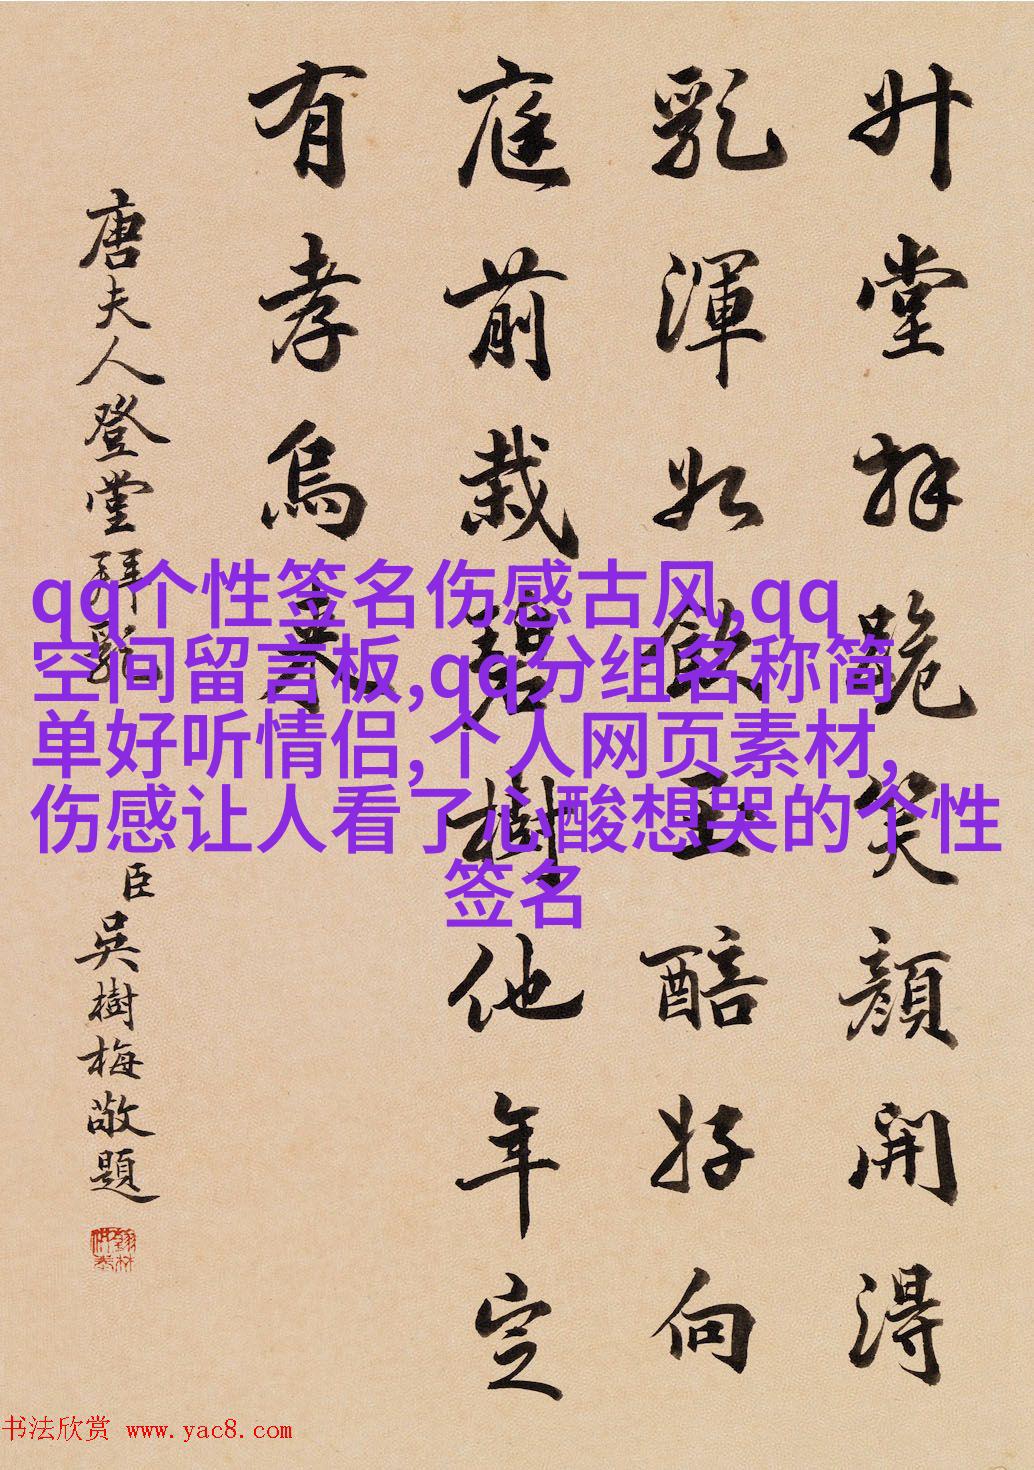 升堂拜跪笑顏開得
乳渾如飲玉醅好向
庭前栽碧樹他年定
有孝烏來
唐夫人登堂拜乳
臣吳樹梅敬題
qq个性签名伤感古风,qq
空间留言板,qq分组名称简
单好听情侣,个人网页素材,
伤感让人看了心酸想哭的个性
签名
书法欣赏 www.yac8.com